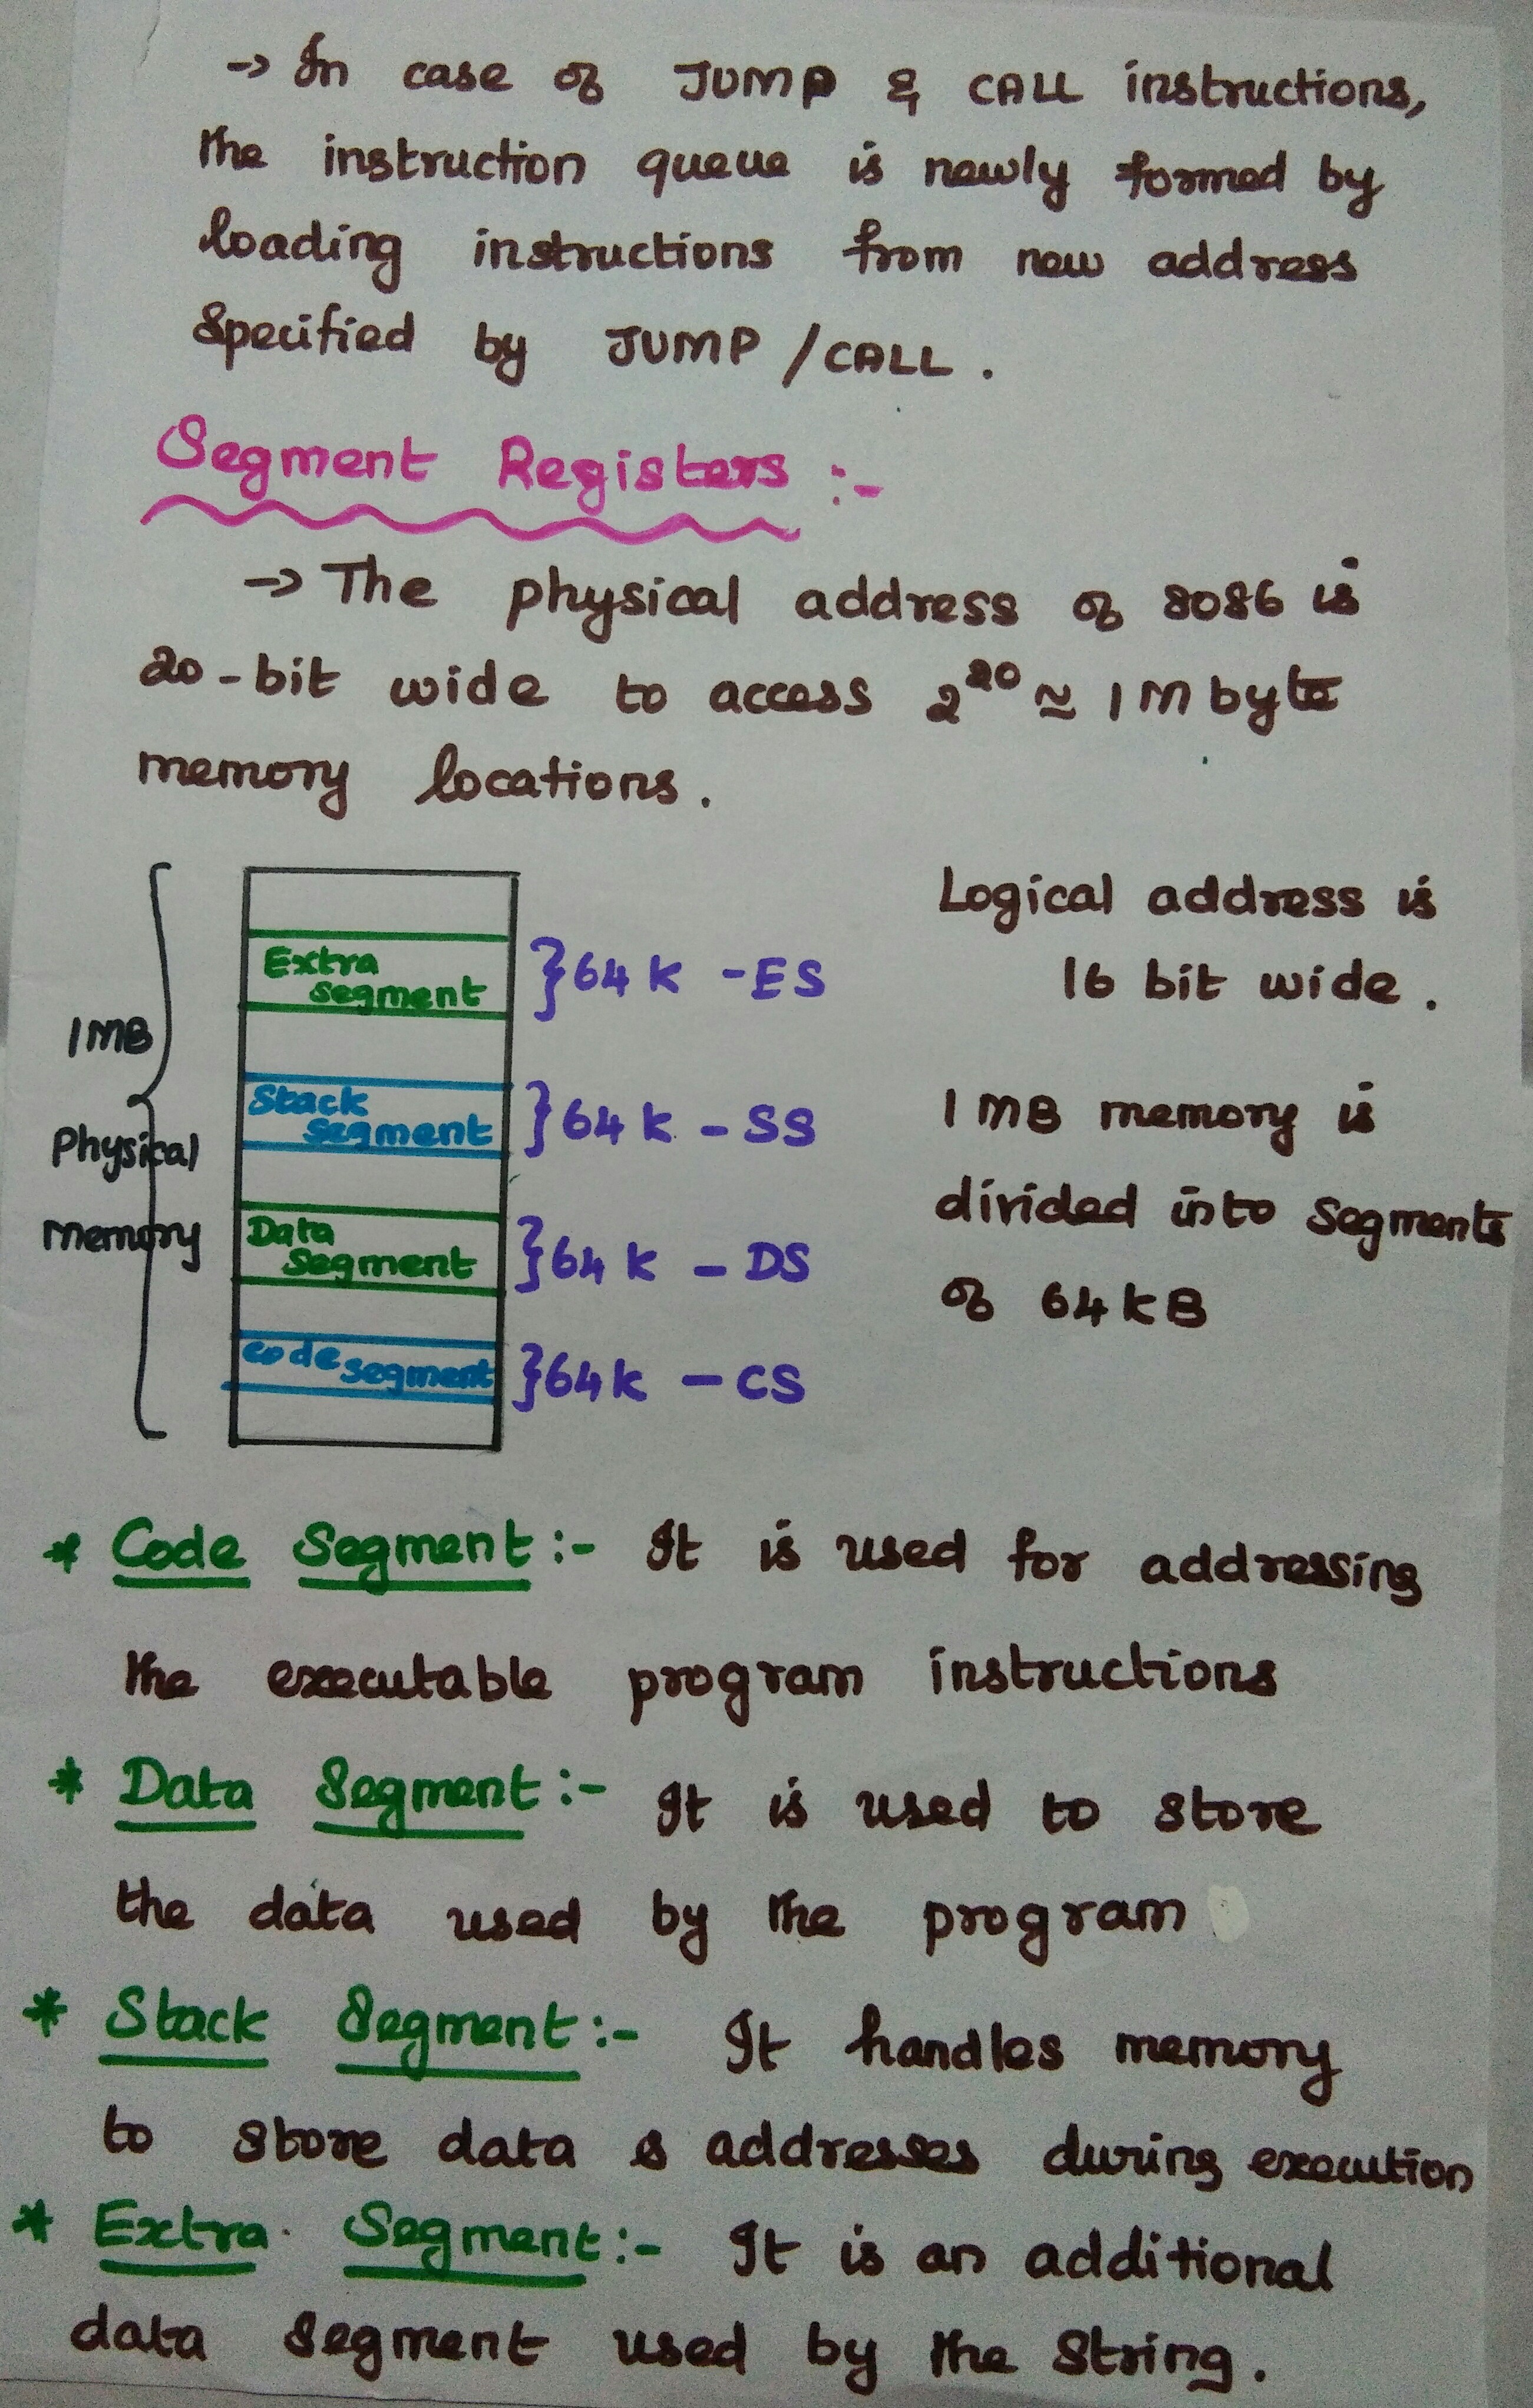 -> In case of JUMP & CALL instructions,
the instruction queue is newly formed by
loading instructions from new address
specified by JUMP /CALL .
Segment Registers :-
-> The physical address of 8086 is
20-bit wide to access 2²⁰ ≃ 1 M byte
memory locations .
1MB
Physical
Memory
Extra
segment
}64 K - ES
Stack
segment
}64 K - SS
Data
segment
}64 K - DS
code segment
}64K - CS
Logical address is
16 bit wide .
1 MB memory is
divided into segments
of 64 KB
* Code Segment :- It is used for addressing
the executable program instructions
* Data Segment :- It is used to store
the data used by the program
* Stack Segment :- It handles memory
to store data & addresses during execution
* Extra Segment :- It is an additional
data segment used by the string .